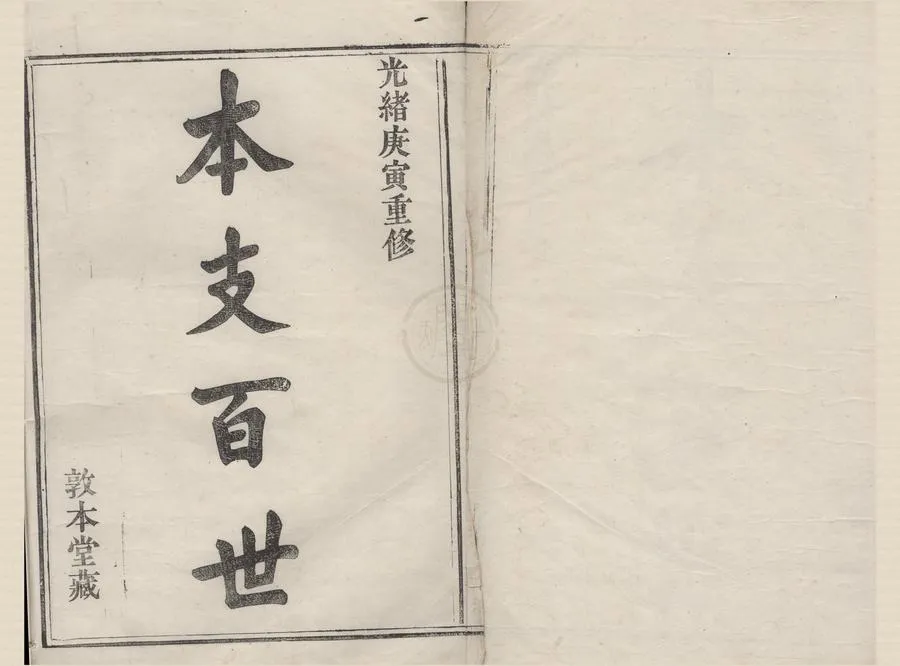 光緒庚寅重修
本支百世
敦本堂藏